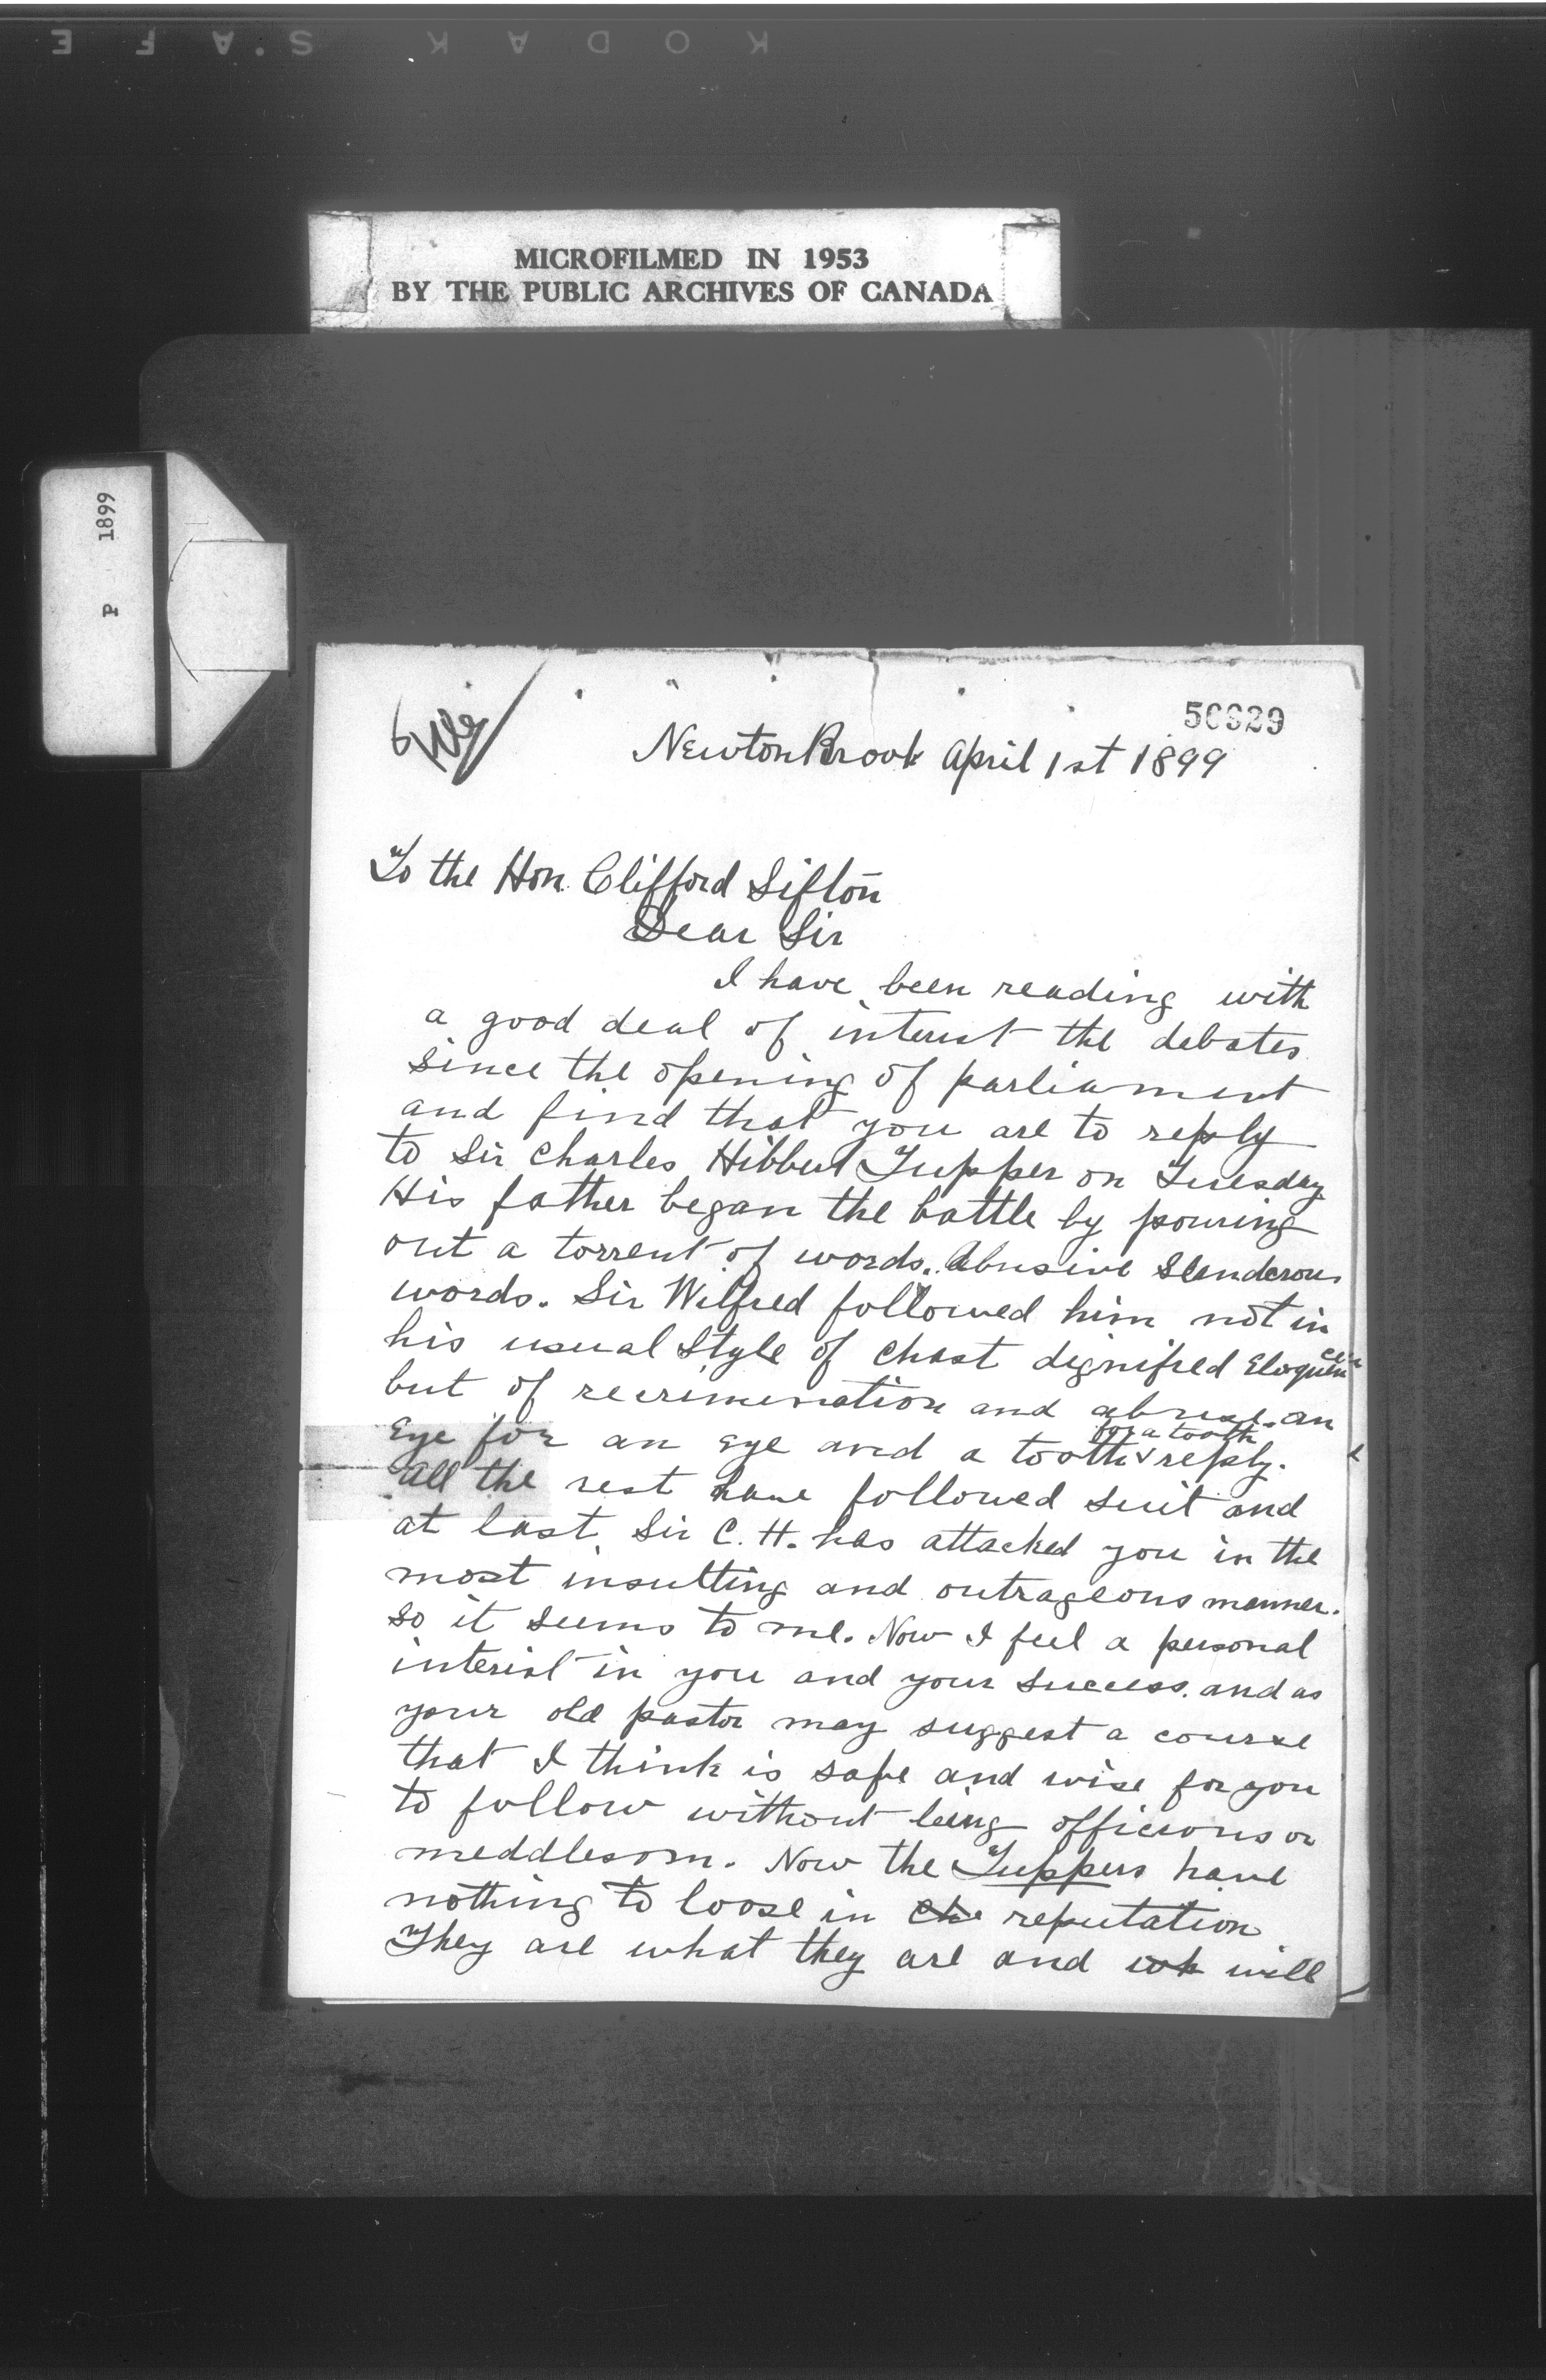 KODAK S.A.F.E
MICROFILMED IN 1953
BY THE PUBLIC ARCHIVES OF CANADA
P 1899
NewtonBrook April 1st 1899
To the Hon. Clifford Sifton
Dear Sir
I have been reading with
a good deal of interest the debates
since the opening of parliament
and find that you are to reply
to Sir Charles Hibbert Tupper on Tuesday
His father began the battle by pouring
out a torrent of words. Abusive Slanderous
words. Sir Wilfred followed him not in
his usual Style of chast dignified Eloquence
but of recrimination and abuse. an
Eye for an Eye and a tooth for a tooth reply.
All the rest have followed suit and
at last. Sir C. H. has attacked you in the
most insulting and outrageous manner.
so it seems to me. Now I feel a personal
interest in you and your success. and as
your old pastor may suggest a course
that I think is safe and wise for you
to follow without being officious or
meddlesom. Now the Tuppers have
nothing to loose in the reputation
They are what they are and wh will